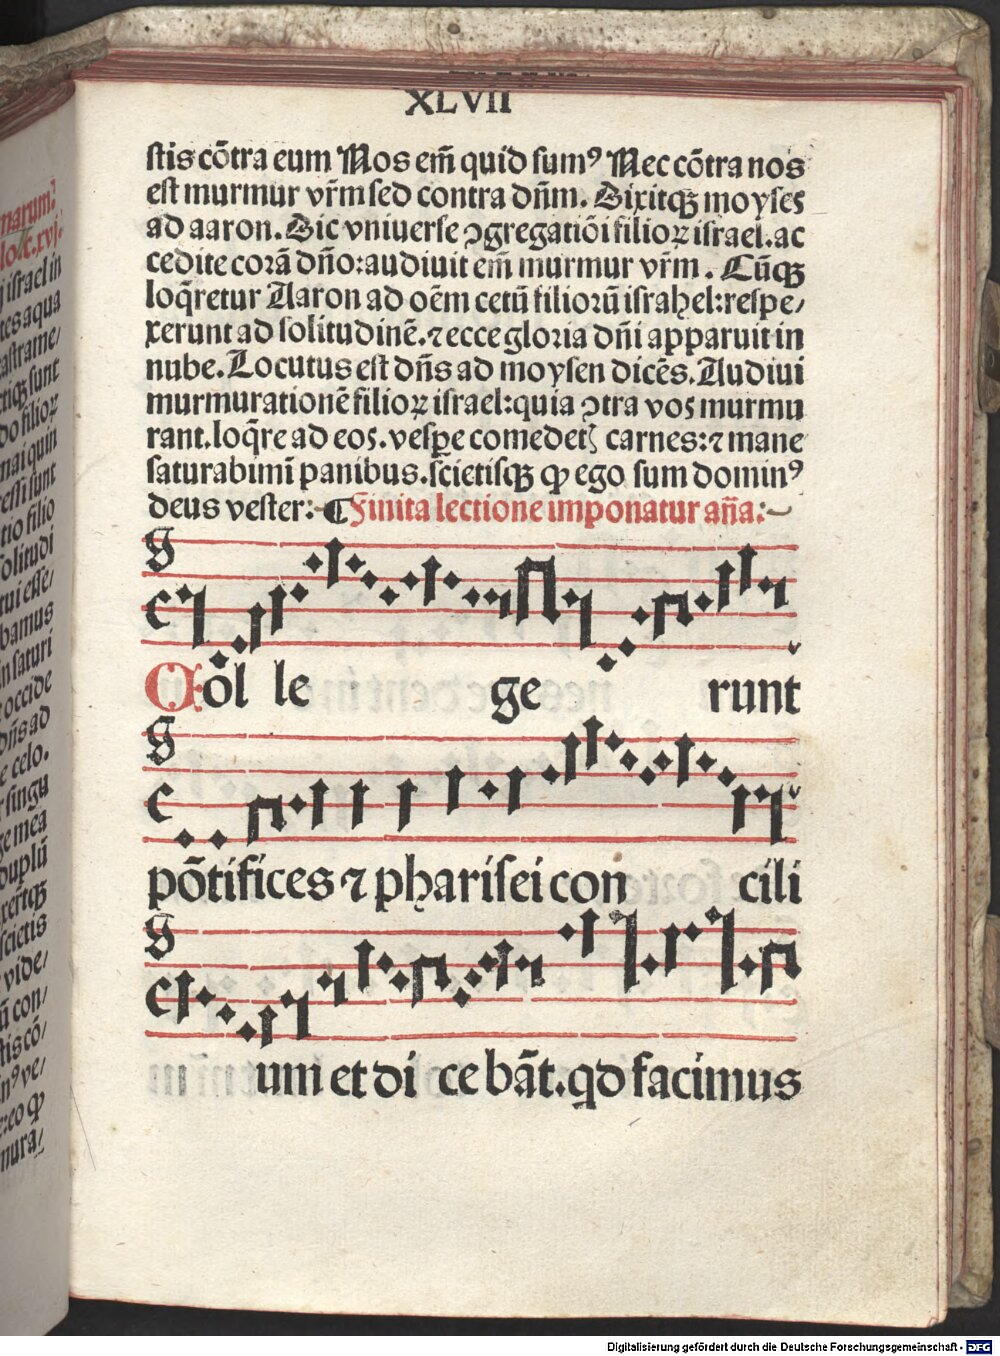 XLVII
stis cõtra eum Nos em̃ quid sumꝰ Nec cõtra nos
est murmur vr̃m sed contra dñm. Dixitqꝫ moyses
ad aaron. Dic vniuerse ꝯgregatiõi filioꝝ israel. ac
cedite corã dño: audiuit em̃ murmur vr̃m. Cũqꝫ
loq̃retur Aaron ad oẽm cetũ filiorũ israhel: respe/
xerunt ad solitudinẽ. ⁊ ecce gloria dñi apparuit in
nube. Locutus est dñs ad moysen dicẽs. Audiui
murmurationẽ filioꝝ israel: quia ꝯtra vos murmu
rant. loq̃re ad eos. vespe comedetꝭ carnes: ⁊ mane
saturabimĩ panibus. scietisqꝫ ꝙ ego sum dominꝰ
deus vester: ¶ Finita lectione imponatur aña:
Cõl le ge runt
põtifices ⁊ pharisei con cili
um et di ce bãt. qd facimus
narum:
lo. c. xvj.
israel in
tes aqua
astrame/
tiqꝫ sunt
do filioꝝ
nai quin
essi sunt
tio filio
olitudi
tui esse/
bamus
in saturi
occide
dñs ad
e celo.
singu
ge mea
duplũ
xeritqꝫ
scietis
vide/
ũ con/
tis cõ/
nꝰ ve/
: eo ꝙ
mura/
Digitalisierung gefördert durch die Deutsche Forschungsgemeinschaft - DFG